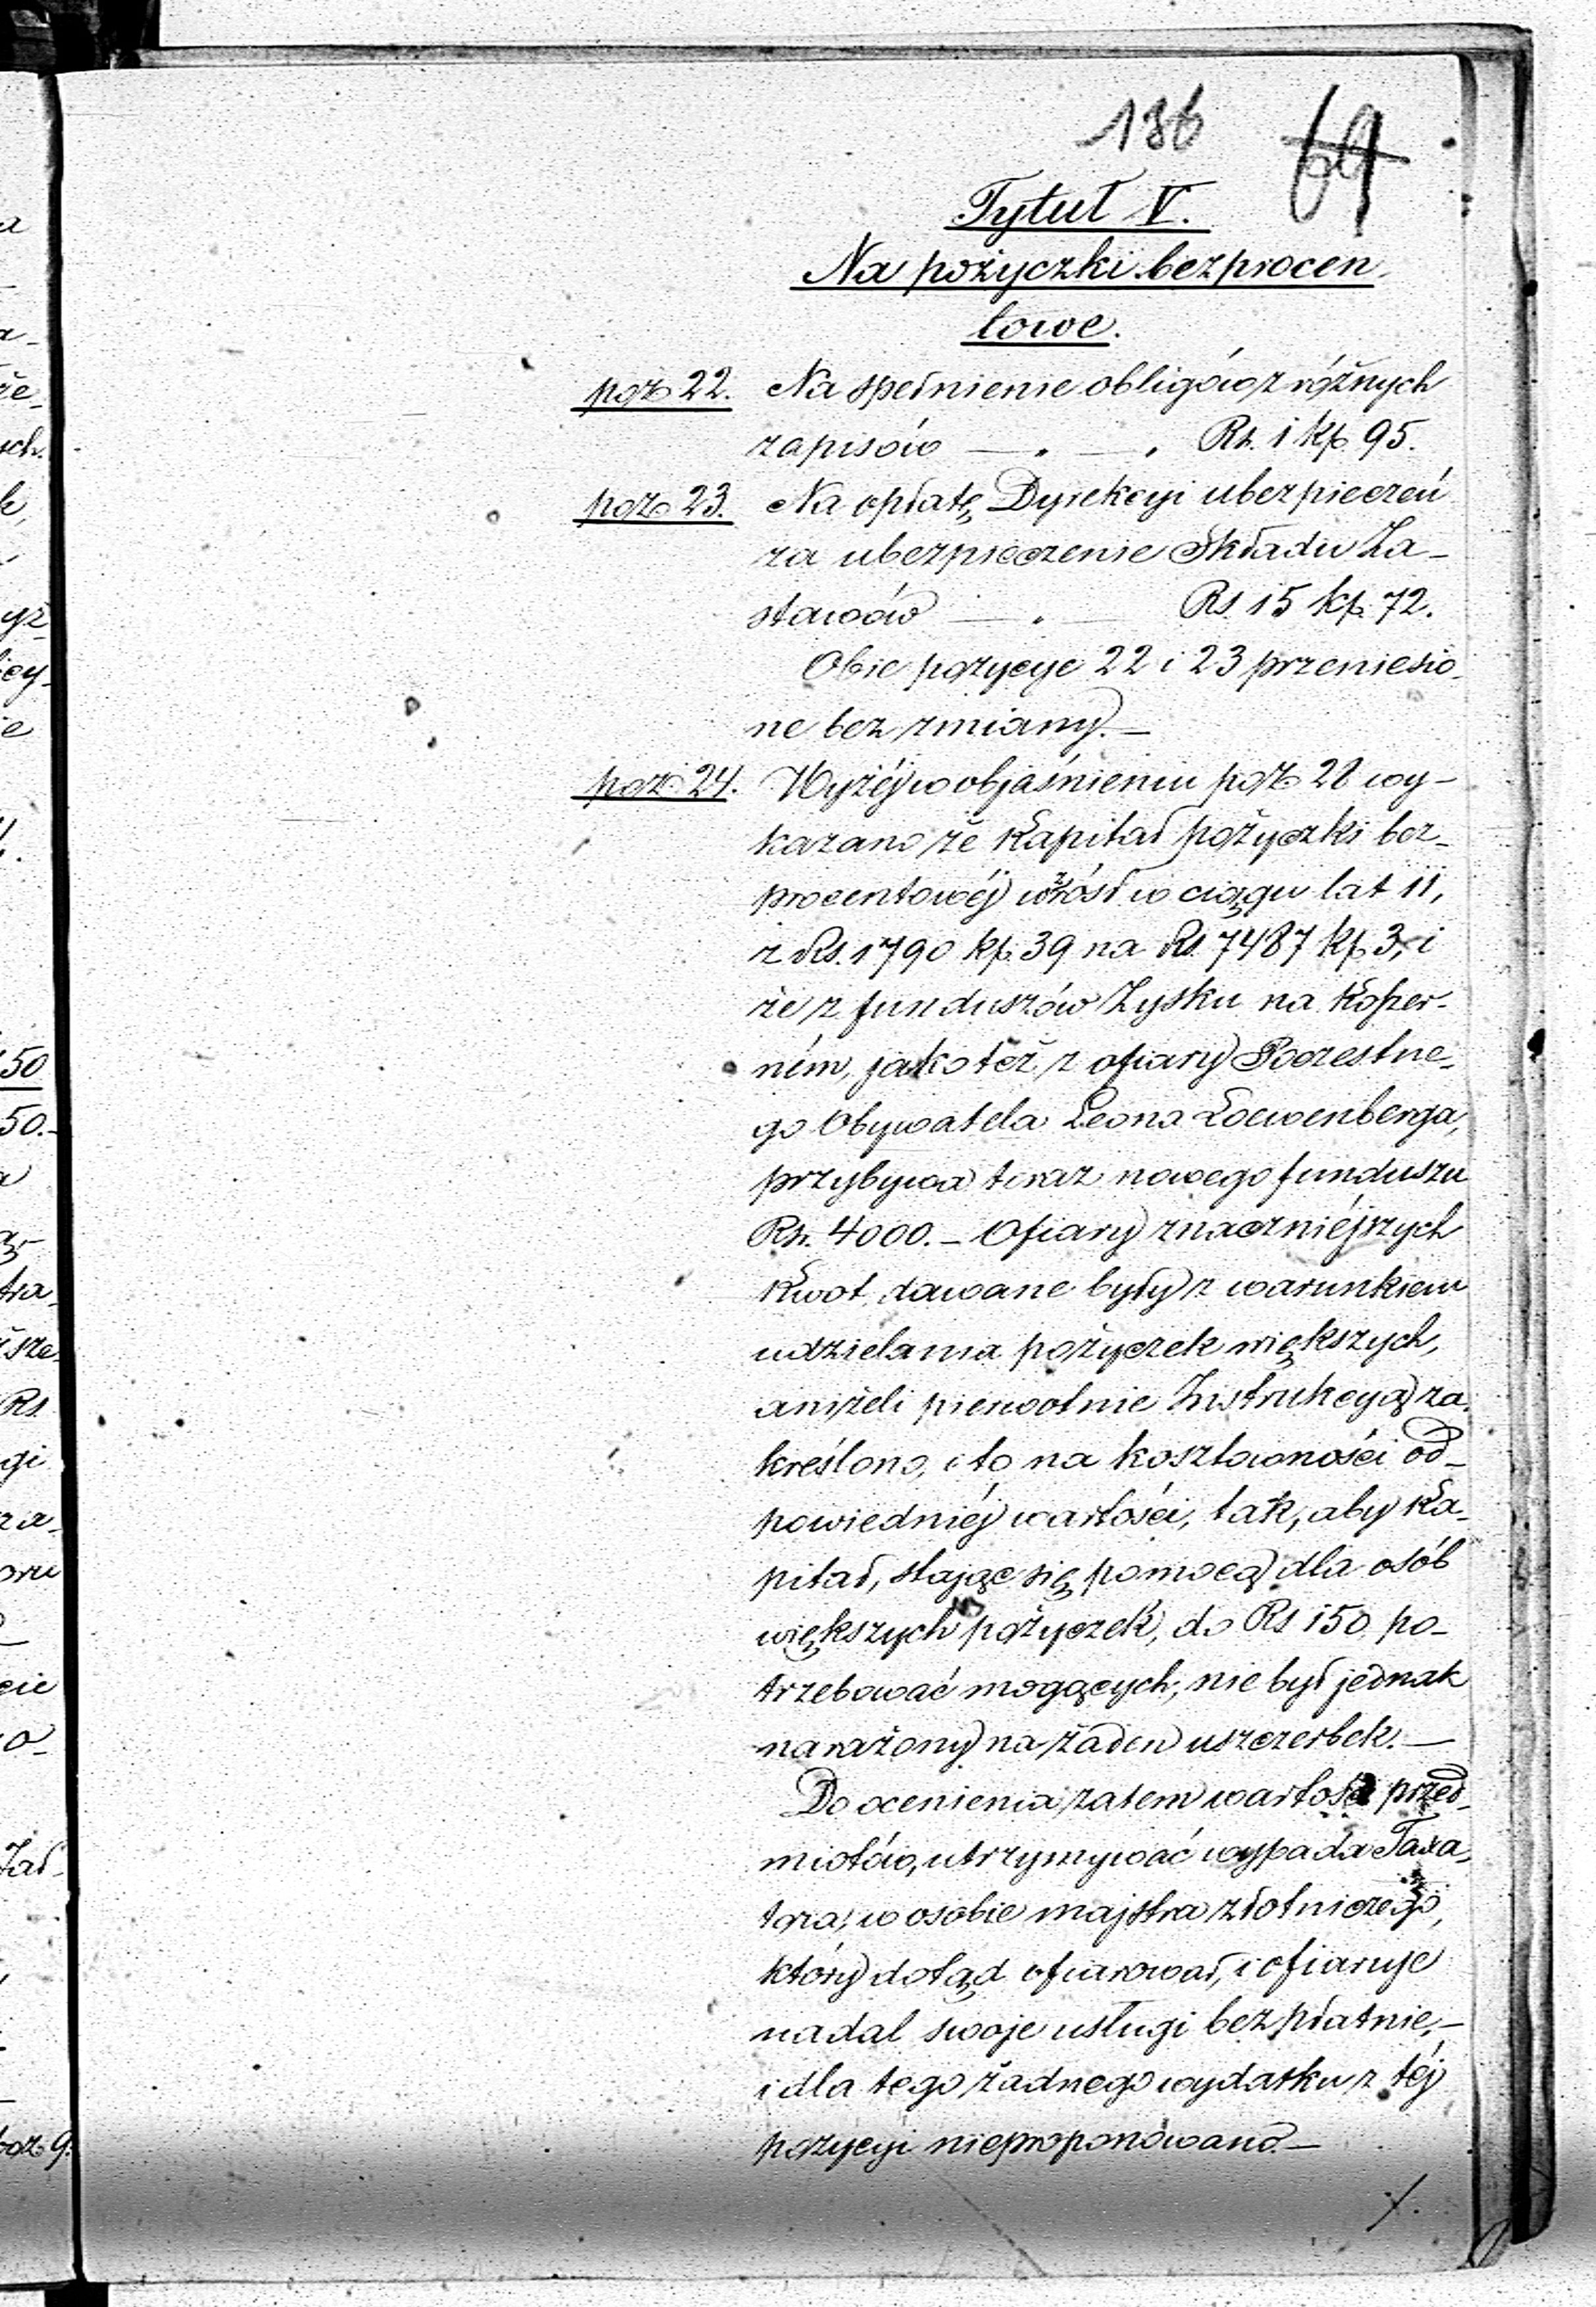 136 69
Tytuł V.
Na pożyczki bezprocen
towe.
poz 22. Na spełnienie obligów z różnych
zapisów — " — " Rs. 1 kp. 95.
poz 23. Na opłatę Dyrekcyi ubezpieczeń
za ubezpieczenie Składu Za-
stawów — " — Rs. 15 kp. 72.
Obie pozycye 22 i 23 przeniesio-
ne bez zmiany. —
poz 24. Wyżéj w objaśnieniu poz 28 wy-
kazano że Kapitał pożyczki bez-
procentowéj wzrósł w ciągu lat 11,
z Rs. 1790 kp. 39 na Rs. 7487 kp. 3, i
że z funduszów Zysku na Koszer-
ném, jako też z ofiary Poczestne-
go Obywatela Leona Loewenberga,
przybywa teraz nowego funduszu
Rs. 4000. — Ofiary znaczniéjszych
Kwot, dawane były z warunkiem
udzielania pożyczek większych,
aniżeli pierwotnie Instrukcyą za-
kreślono, i to na kosztowności od-
powiedniéj wartości, tak, aby Ka-
pitał, stając się pomocą dla osób
większych pożyczek, do Rs 150 po-
trzebować mogących, nie był jednak
narażony na żaden uszczerbek. —
Do ocenienia zatem wartości przed-
miotów, utrzymywać wypada Taxa-
tora, w osobie majstra złotniczego,
który dotąd ofiarował, i ofiaruje
nadal swoje usługi bezpłatnie, —
i dla tego żadnego wydatku z téj
pozycyi nieproponowano. —